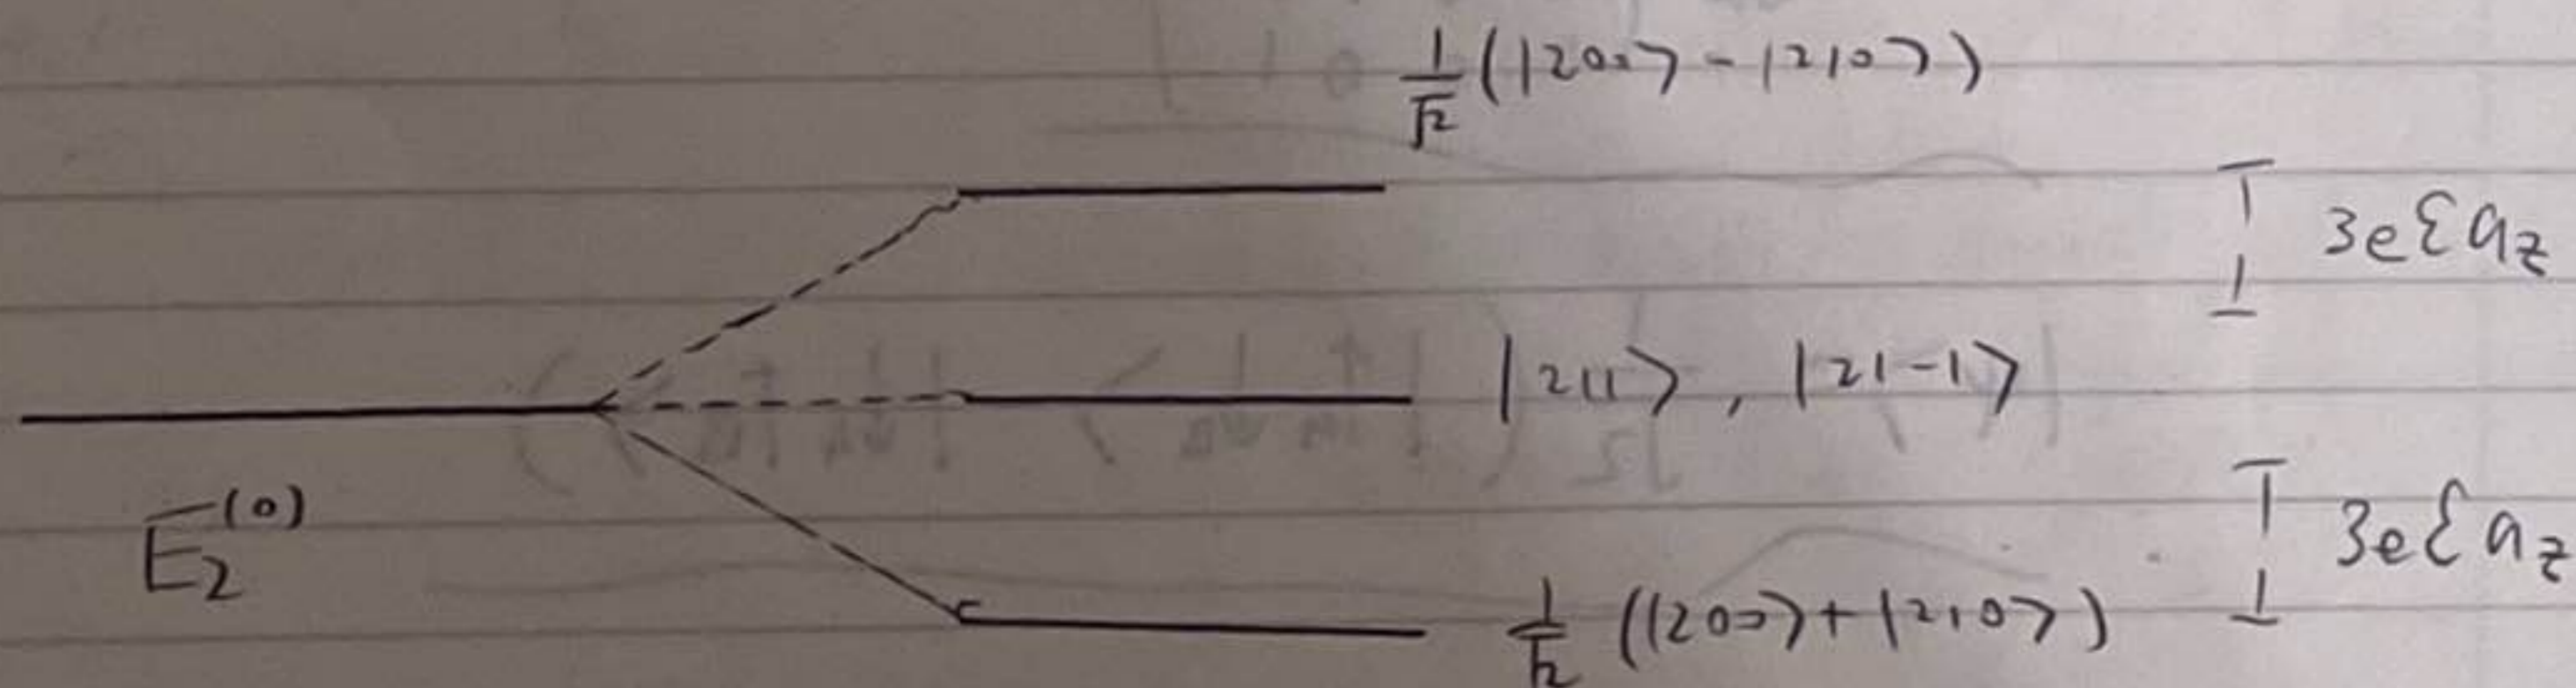 1/√2 (|200⟩ - |210⟩)
3eƐa_z
|211⟩, |21-1⟩
E_2^(0)
3eƐa_z
1/√2 (|200⟩ + |210⟩)